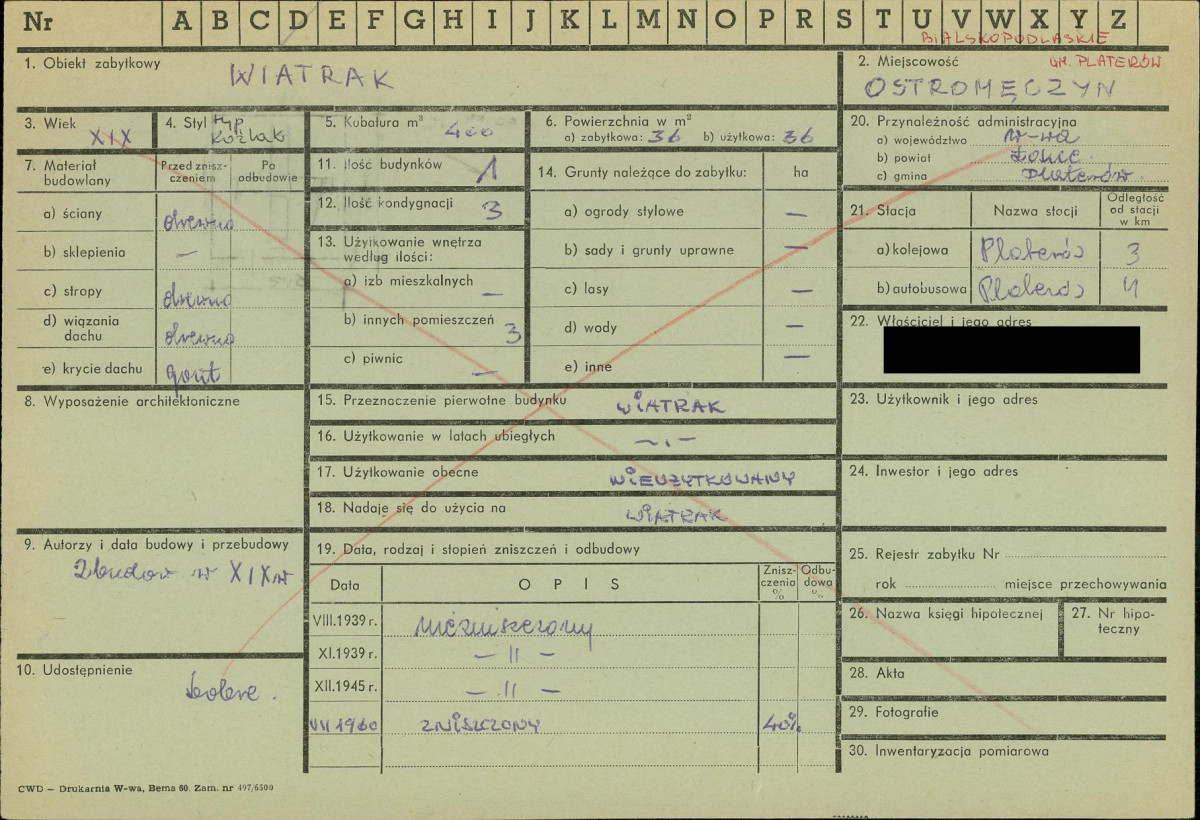 Nr A B C D E F G H I J K L M N O P R S T U V W X Y Z
BIALSKOPODLASKIE
1. Obiekt zabytkowy WIATRAK
2. Miejscowość GM. PLATERÓW
OSTROMĘCZYN
3. Wiek XIX
4. Styl typ
Koźlak
5. Kubatura m³ 400
6. Powierzchnia w m²
a) zabytkowa: 36 b) użytkowa: 36
20. Przynależność administracyjna
a) województwo W-wa
b) powiat Łosice
c) gmina Platerów
7. Materiał budowlany
Przed znisz-
czeniem
Po
odbudowie
a) ściany drewno
b) sklepienia —
c) stropy drewno
d) wiązania
dachu drewno
e) krycie dachu gont
11. Ilość budynków 1
12. Ilość kondygnacji 3
13. Użytkowanie wnętrza
według ilości:
a) izb mieszkalnych —
b) innych pomieszczeń 3
c) piwnic —
14. Grunty należące do zabytku: ha
a) ogrody stylowe —
b) sady i grunty uprawne —
c) lasy —
d) wody —
e) inne —
21. Stacja Nazwa stacji Odległość
od stacji
w km
a) kolejowa Platerów 3
b) autobusowa Platerów 4
22. Właściciel i jego adres
8. Wyposażenie architektoniczne
15. Przeznaczenie pierwotne budynku WIATRAK
16. Użytkowanie w latach ubiegłych —„—
17. Użytkowanie obecne NIEUŻYTKOWANY
18. Nadaje się do użycia na WIATRAK
23. Użytkownik i jego adres
24. Inwestor i jego adres
9. Autorzy i data budowy i przebudowy
Zbudow w XIX w
10. Udostępnienie
dobre.
19. Data, rodzaj i stopień zniszczeń i odbudowy
Data O P I S Znisz-
czenia
% Odbu-
dowa
%
VIII.1939 r. niezniszczony
XI.1939 r. — 11 —
XII.1945 r. — 11 —
VII 1960 ZNISZCZONY 40%
25. Rejestr zabytku Nr
rok miejsce przechowywania
26. Nazwa księgi hipotecznej
27. Nr hipo-
teczny
28. Akta
29. Fotografie
30. Inwentaryzacja pomiarowa
CWD — Drukarnia W-wa, Bema 60. Zam. nr 497/6500